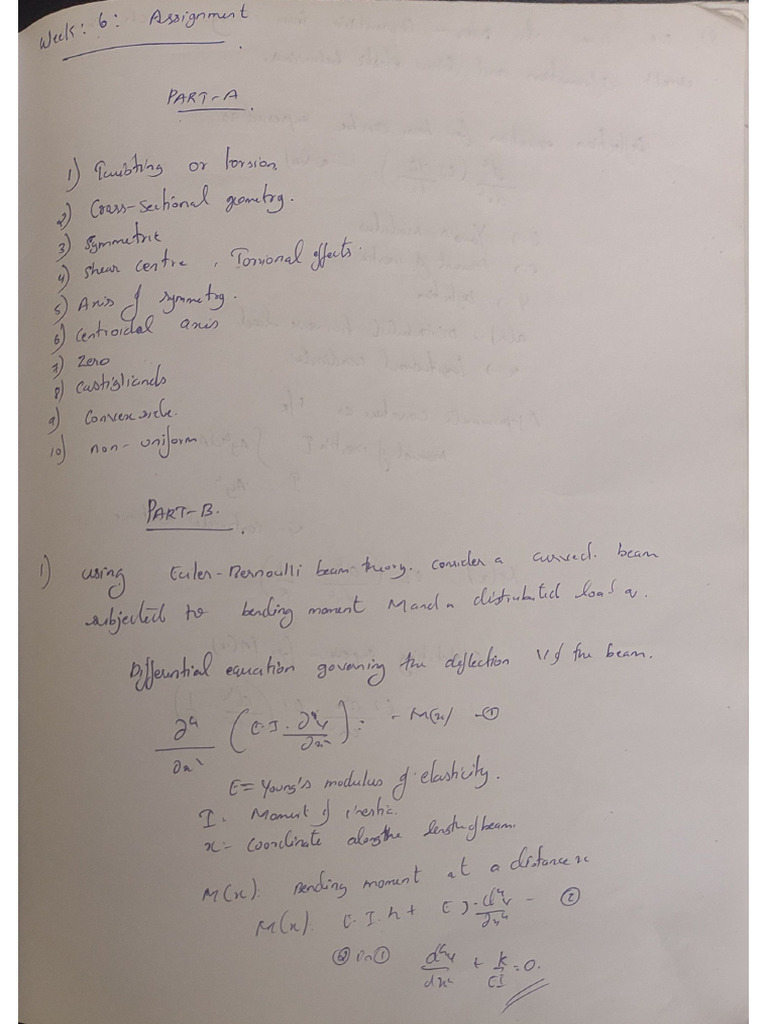 Week: 6: Assignment
PART-A
1) Twisting or torsion
2) Cross-sectional geometry.
3) Symmetric
4) Shear centre, Torsional effects.
5) Axis of symmetry.
6) Centroidal axis
7) Zero
8) Castigliands
9) Convex side.
10) non-uniform
PART-B.
1) using Euler-Bernoulli beam theory. consider a curved beam
subjected to bending moment M and a distributed load q.
Differential equation governing the deflection v of the beam.
∂⁴/∂x² (E.I. ∂⁴v/∂x²) = -M(x) -①
E= Young's modulus of elasticity.
I. Moment of inertia.
x= Coordinate along the length of beam.
M(x). Bending moment at a distance x
M(x). E.I. h + EI.d⁴v/∂x⁴ - ②
② in ① d⁴v/dx² + k/EI = 0.